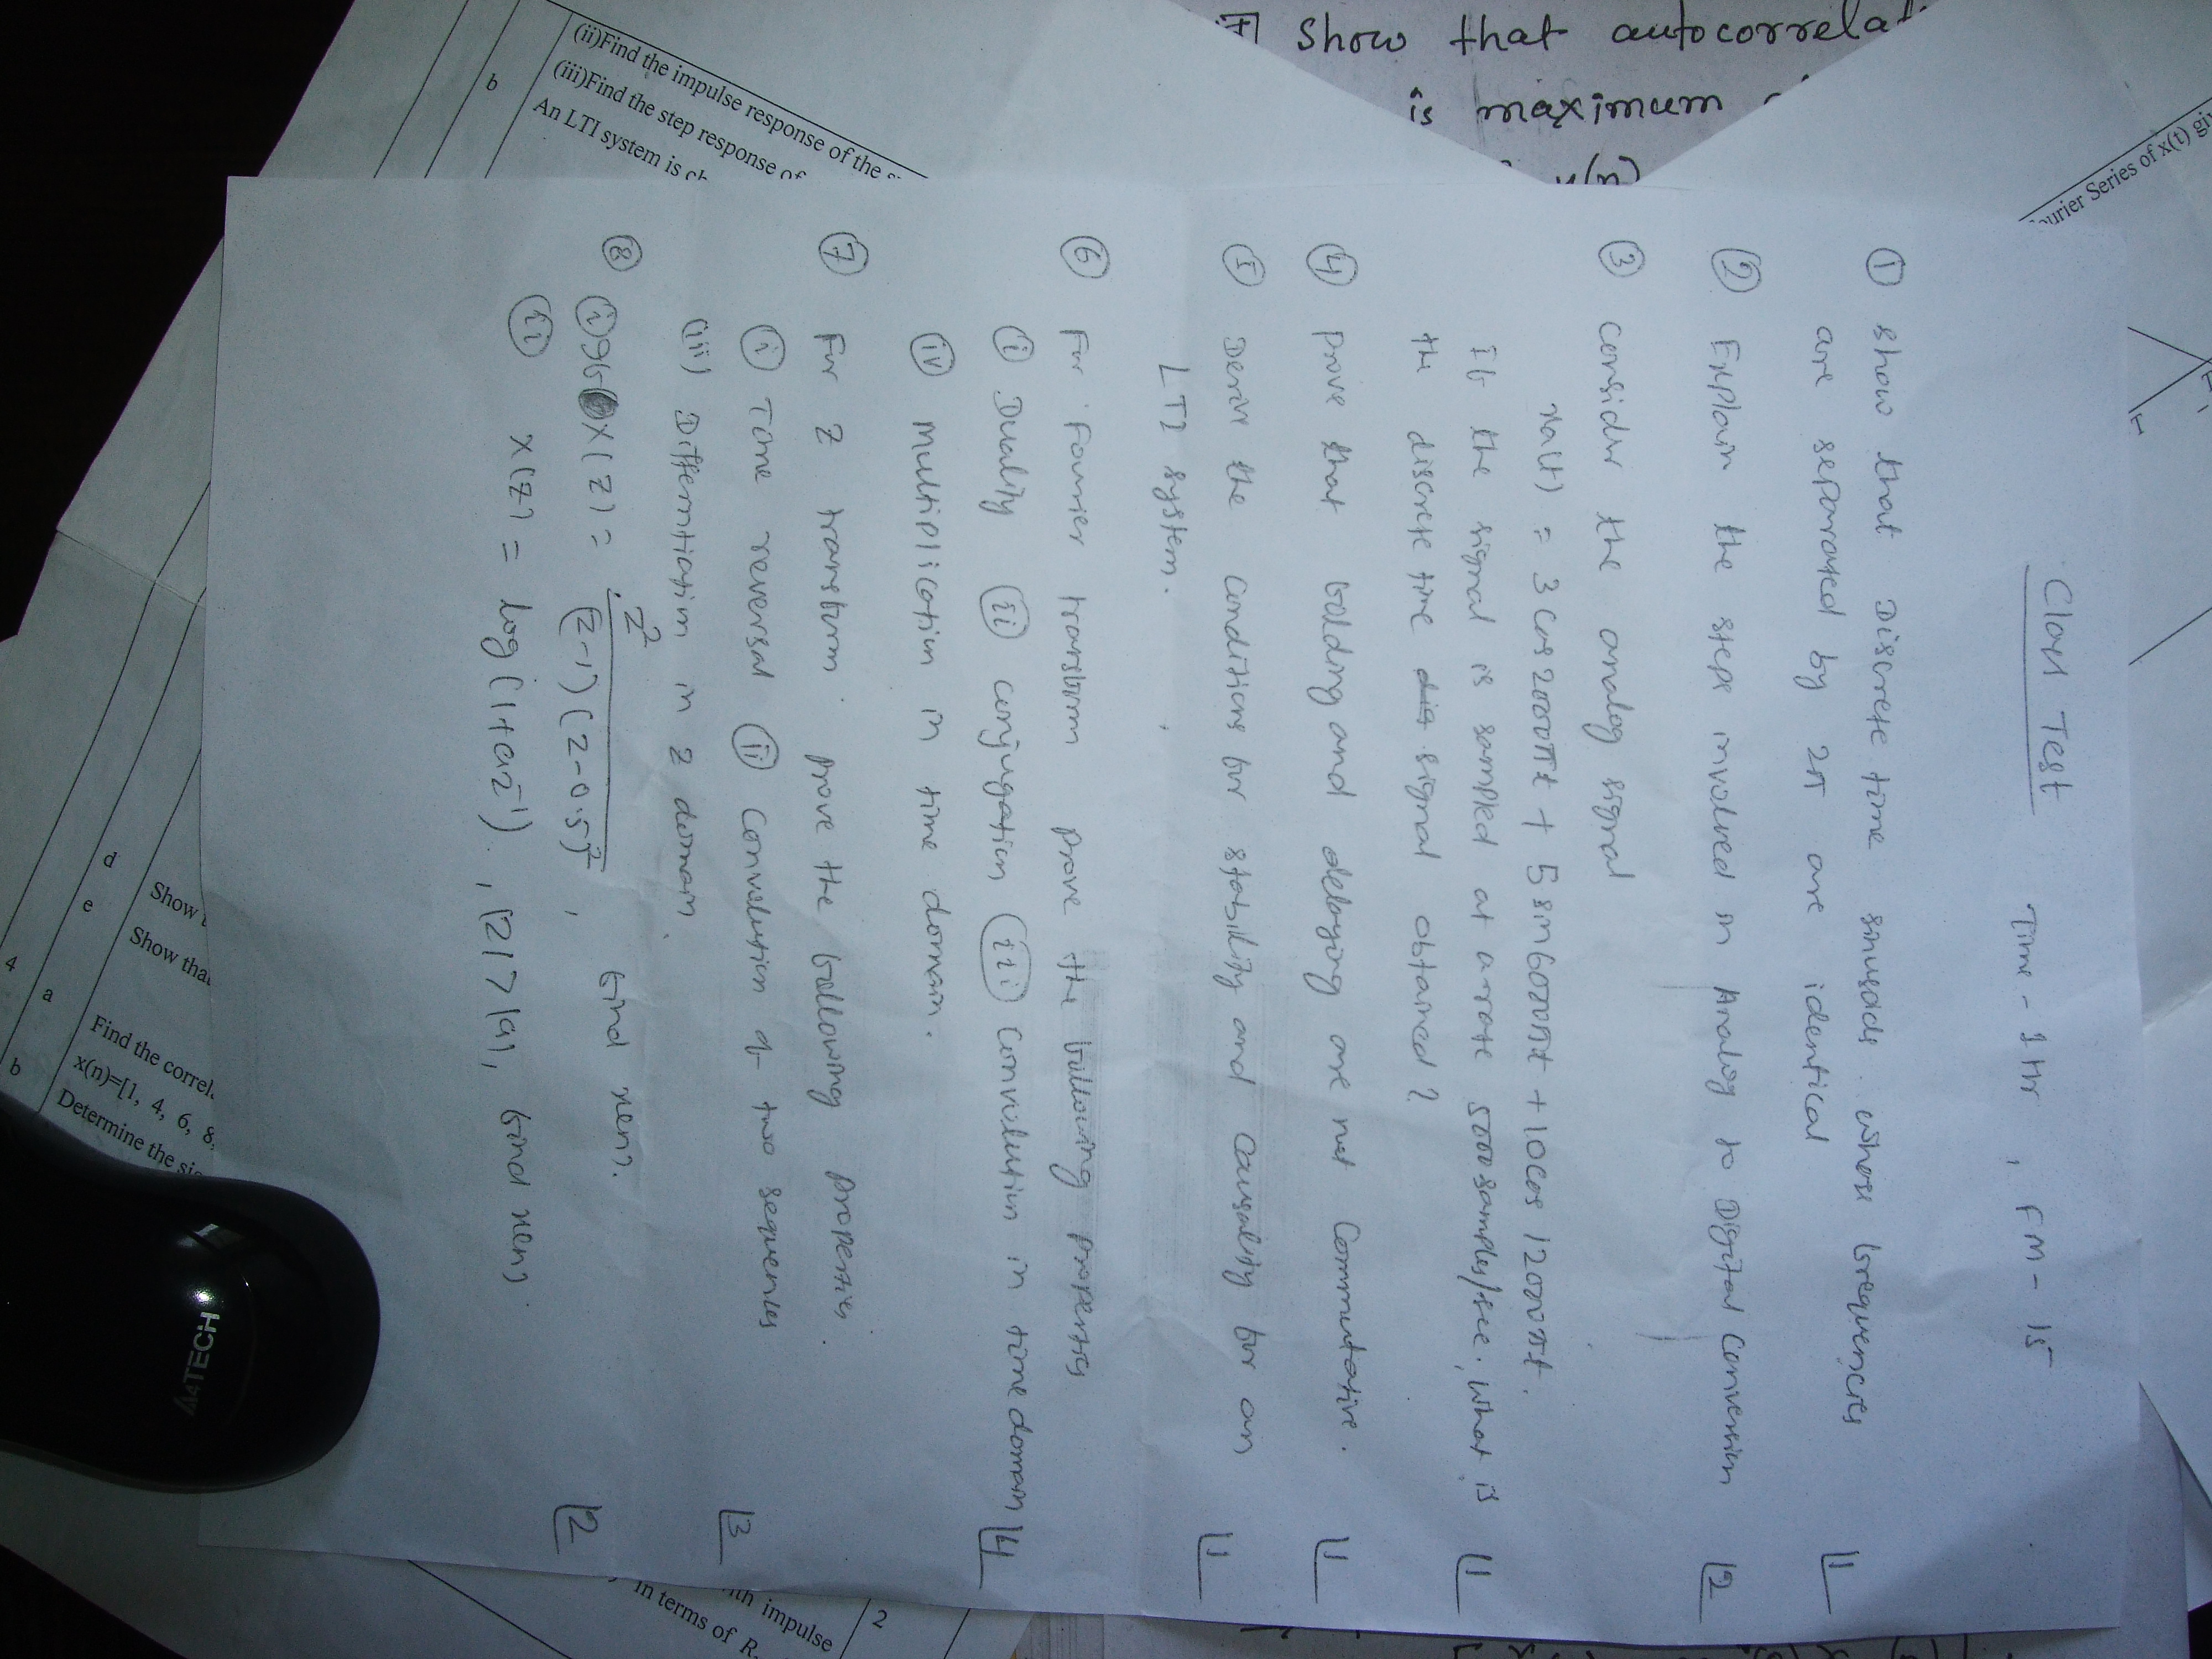 Class Test
Time - 1 Hr , FM - 15
① Show that Discrete time sinusoids whose frequencies
are separated by 2π are identical
1
② Explain the steps involved in Analog to Digital Conversion
2
③ Consider the analog signal
xa(t) = 3 cos 2000πt + 5 sin 6000πt + 10 cos 12000πt.
If the signal is sampled at a rate 5000 samples/sec. What is
1
the discrete time dig signal obtained ?
④ Prove that folding and delaying are not Commutative.
1
⑤ Derive the Conditions for stability and Causality for an
1
LTI system.
⑥ For Fourier transform prove the following properties
ⓘ Duality ⓘⓘ conjugation ⓘⓘⓘ Convolution in time domain
4
ⓘⓥ Multiplication in time domain.
⑦ For Z transform prove the following properties.
ⓘ Time reversal ⓘⓘ Convolution of two sequences
3
(iii) Differntiation in z domain
⑧ ⓘ If X(Z) = z² / (z-1)(z-0.5)² , find x(n).
2
ⓘⓘ X(Z) = log(1+az⁻¹). , |z| > |a|, find x(n)
ourier Series of x(t) gi
T
Show that autocorrelat
is maximum
(ii)Find the impulse response of the
(iii)Find the step response of
An LTI system is
b
2
th impulse
in terms of R
d
Show
e
Show that
4
a
Find the correl
x(n)=[1, 4, 6, 8,
b
Determine the si
A4TECH